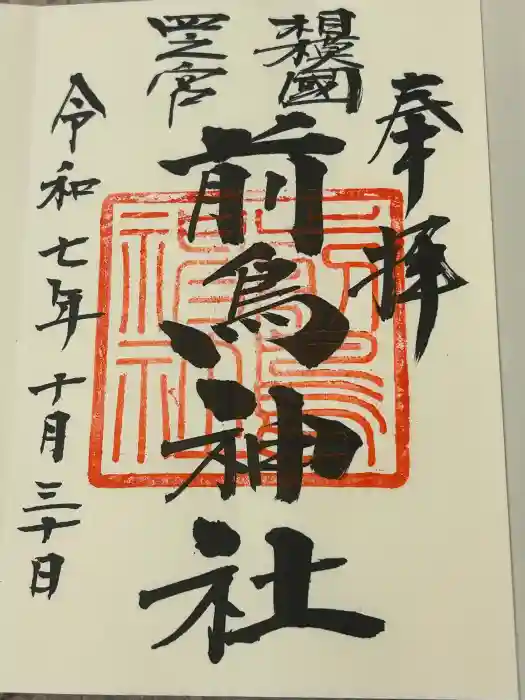 奉拝
相模國
四之宮
前鳥神社
令和七年十月三十日